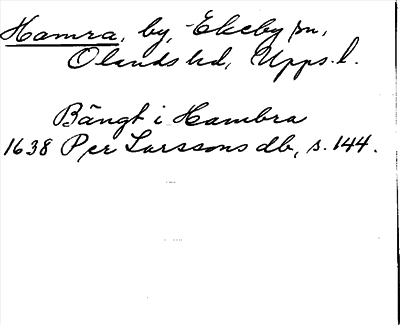 Hamra, by, Ekeby sn,
Olands hd, Upps. l.
Bängt i Hambra
1638 Per Larssons db, s. 144.